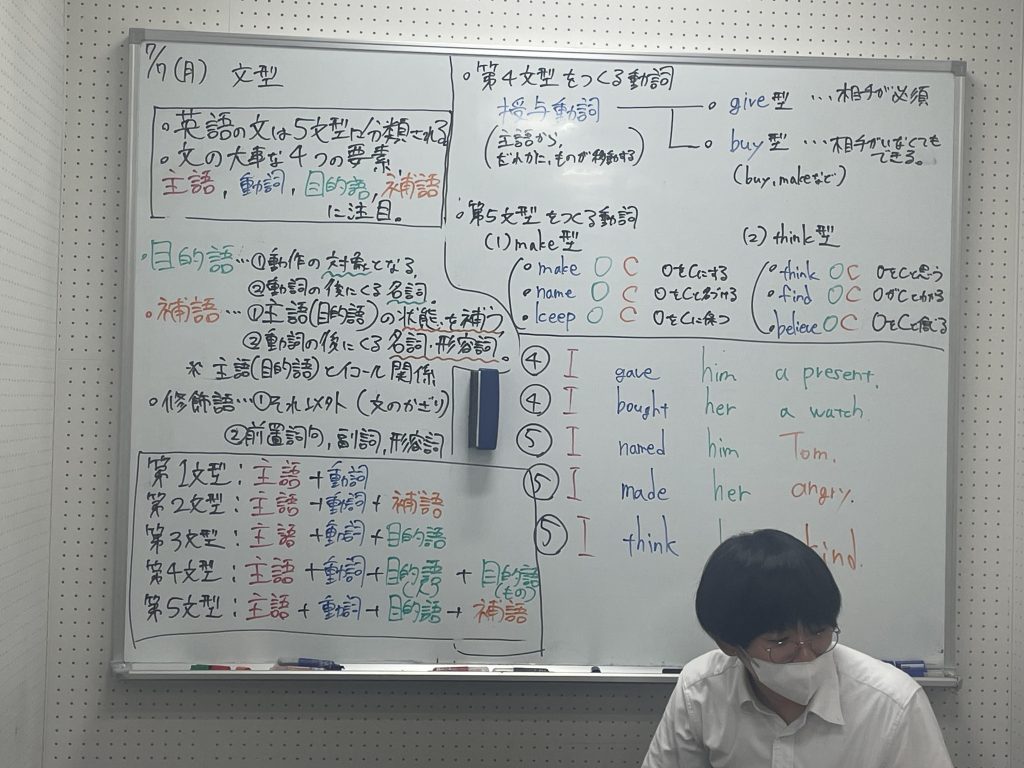 7/7(月) 文型
○英語の文は5文型に分類される
○文の大事な4つの要素
主語, 動詞, 目的語, 補語
に注目。
○目的語…①動作の対象となる
②動詞の後にくる名詞。
○補語…①主語(目的語)の状態を補う
②動詞の後にくる名詞・形容詞。
※主語(目的語)とイコール関係
○修飾語…①それ以外(文のかざり)
②前置詞句, 副詞, 形容詞
第1文型:主語+動詞
第2文型:主語+動詞+補語
第3文型:主語+動詞+目的語
第4文型:主語+動詞+目的語(人)+目的語(もの)
第5文型:主語+動詞+目的語+補語
○第4文型をつくる動詞
授与動詞
(主語から,
だれかに,ものが移動する)
○give型 …相手が必須
○buy型 …相手がいなくても
できる。
(buy, makeなど)
○第5文型をつくる動詞
(1)make型
○make O C OをCにする
○name O C OをCと名づける
○keep O C OをCに保つ
(2)think型
○think O C OをCと思う
○find O C OがCとわかる
○believe O C OをCと信じる
④ I gave him a present.
④ I bought her a watch.
⑤ I named him Tom.
⑤ I made her angry.
⑤ I think